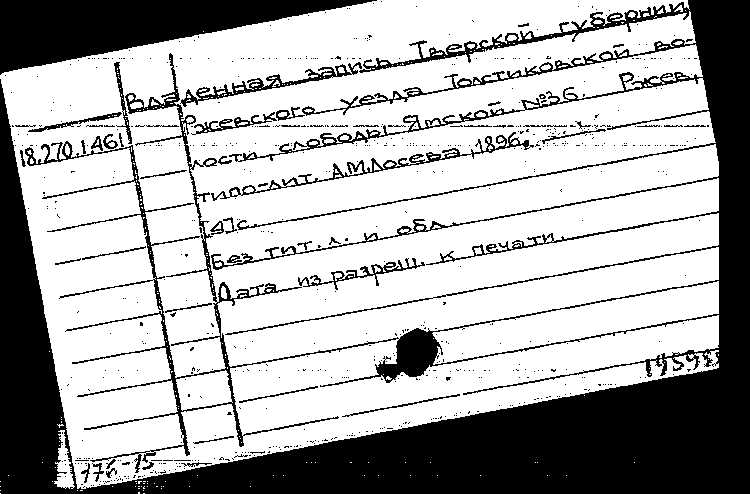 Владенная запись Тверской губернии,
Ржевского уезда Толстиковской во-
18.270.1461
лости, слободы Ямской №36. Ржев,
типо-лит. А.М.Лосева, 1896.
[4]с.
Без тит. л. и обл.
Дата из разреш. к печати.
176-15